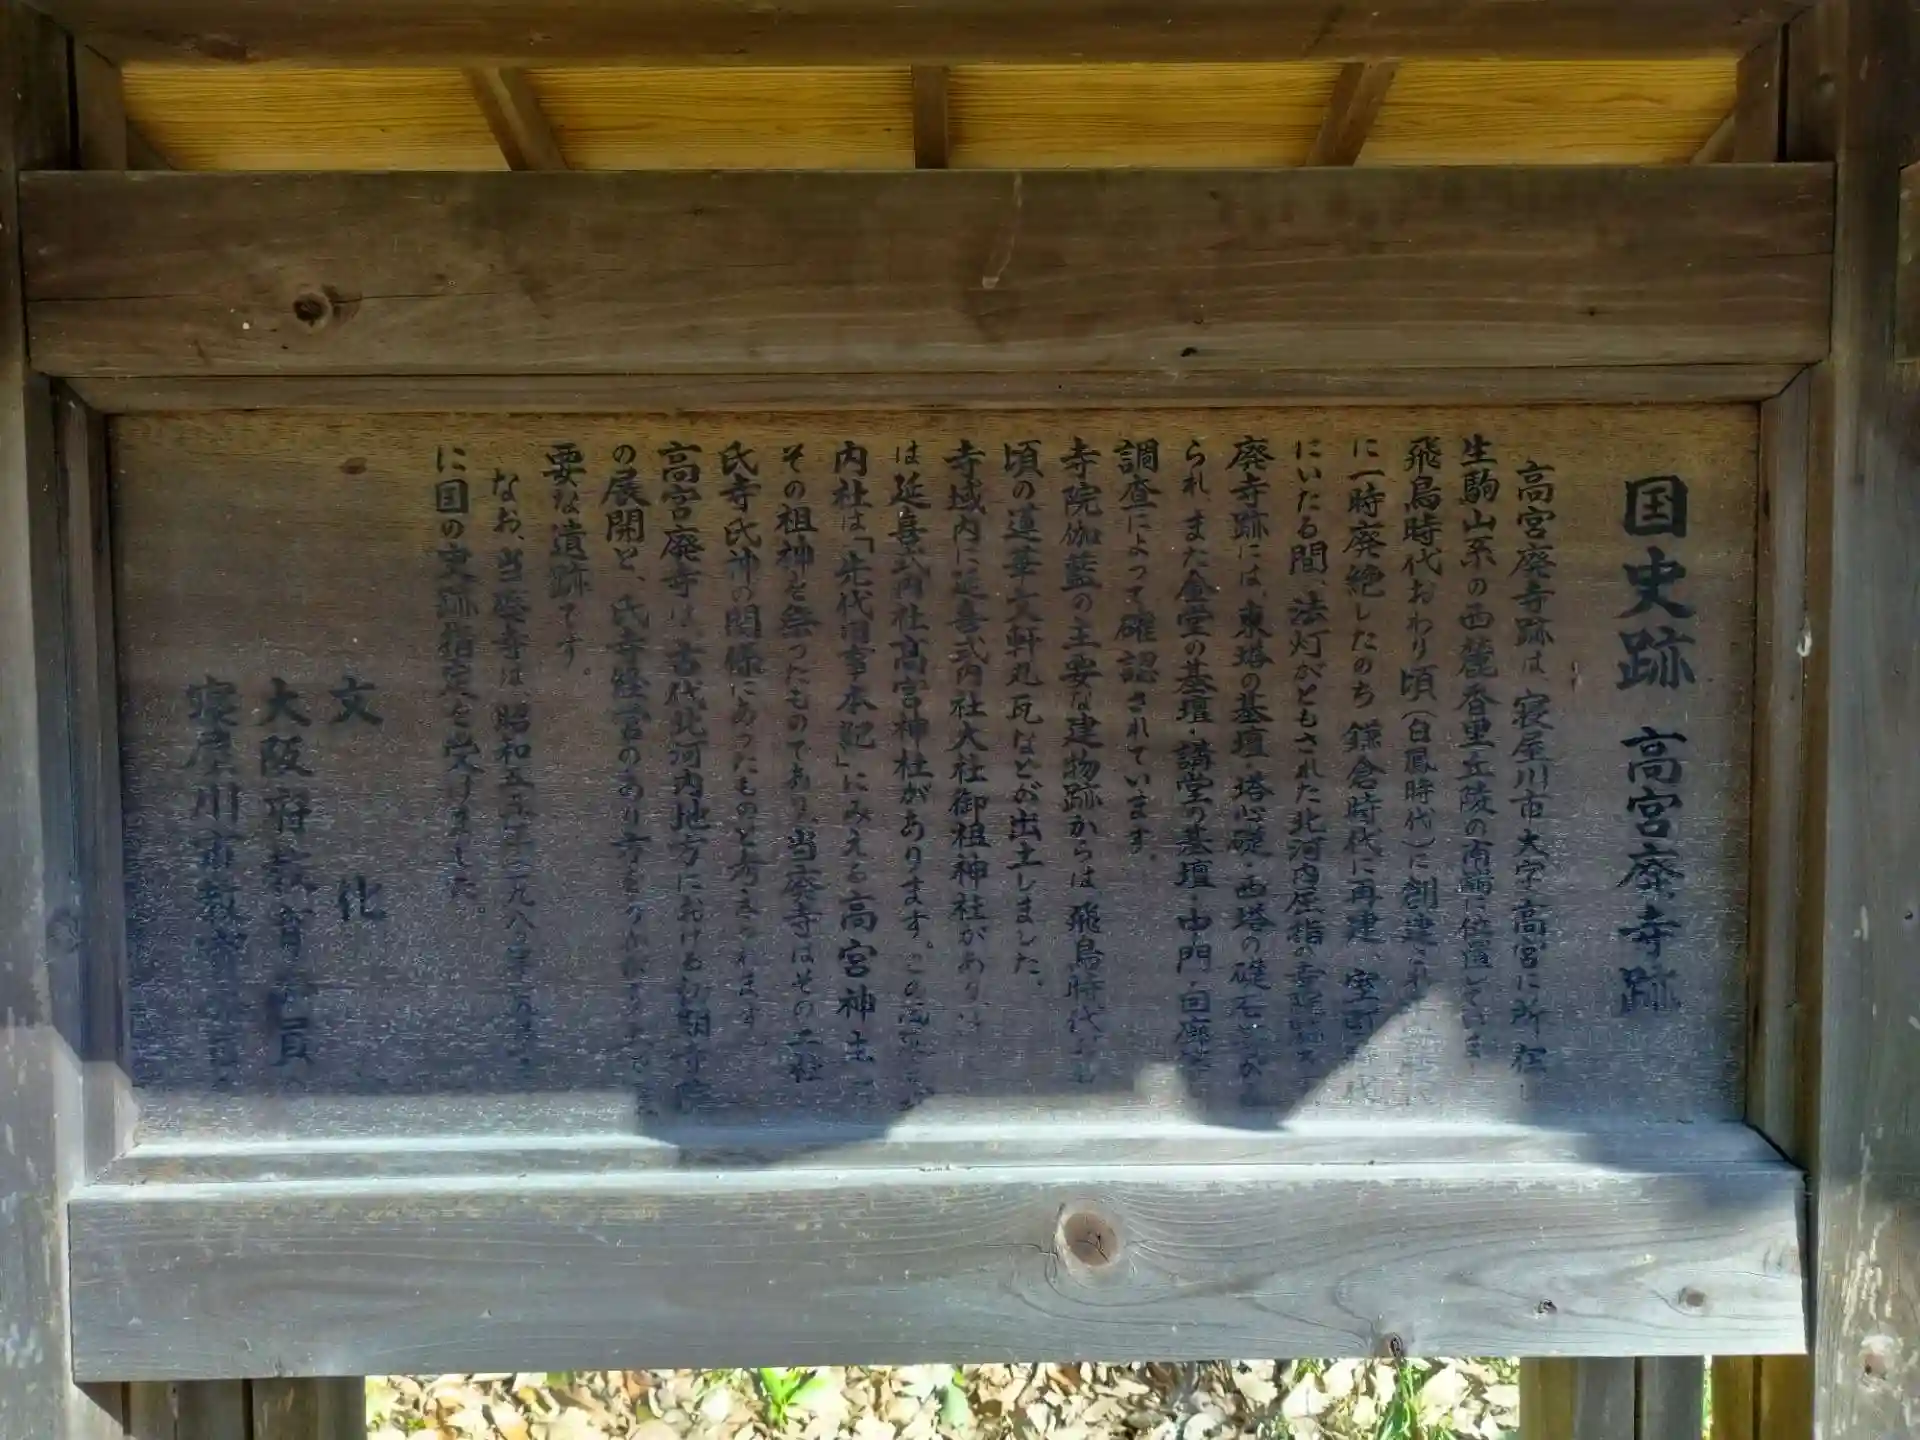 国史跡 高宮廃寺跡
高宮廃寺跡は、寝屋川市大字高宮に所在し
生駒山系の西麓香里丘陵の南端に位置していま
飛鳥時代おわり頃(白鳳時代)に創建され
に一時廃絶したのち 鎌倉時代に再建、室町時代
にいたる間、法灯がともされた北河内屈指の
廃寺跡には、東塔の基壇・塔心礎・西塔の礎石
られ、また金堂の基壇・講堂の基壇・中門・回廊
調査によって確認されています。
寺院伽藍の主要な建物跡からは、飛鳥時代
頃の蓮華文軒丸瓦などが出土しました。
寺域内に延喜式内社大社御祖神社があり、
は延喜式内社高宮神社があります。この
内社は「先代旧事本紀」にみえる高宮神主
その祖神を祭ったものであり、当廃寺はその
氏寺氏神の関係にあったものと考えられます
高宮廃寺は、古代北河内地方における初期寺院
の展開と、氏寺経営のあり方を
要な遺跡です。
なお、当廃寺は、昭和五五年(一九八〇年)
に国の史跡指定を受けました。
文 化
大阪府教育委員
寝屋川市教育委員